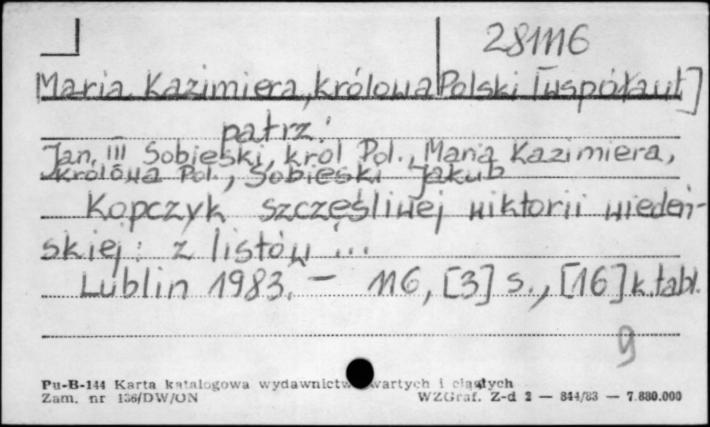 281116
Maria Kazimiera, królowa Polski [współaut]
patrz:
Jan III Sobieski, król Pol., Maria Kazimiera,
królowa Pol., Sobieski Jakub
Kopczyk szczęśliwej wiktorii wiedeń-
skiej: z listów ...
Lublin 1983. - 116, [3] s., [16] k.tabl.
9
Pu-B-144 Karta katalogowa wydawnictw zwartych i ciągłych
Zam. nr 136/DW/ON WZGraf. Z-d 2 — 844/83 — 7.880.000